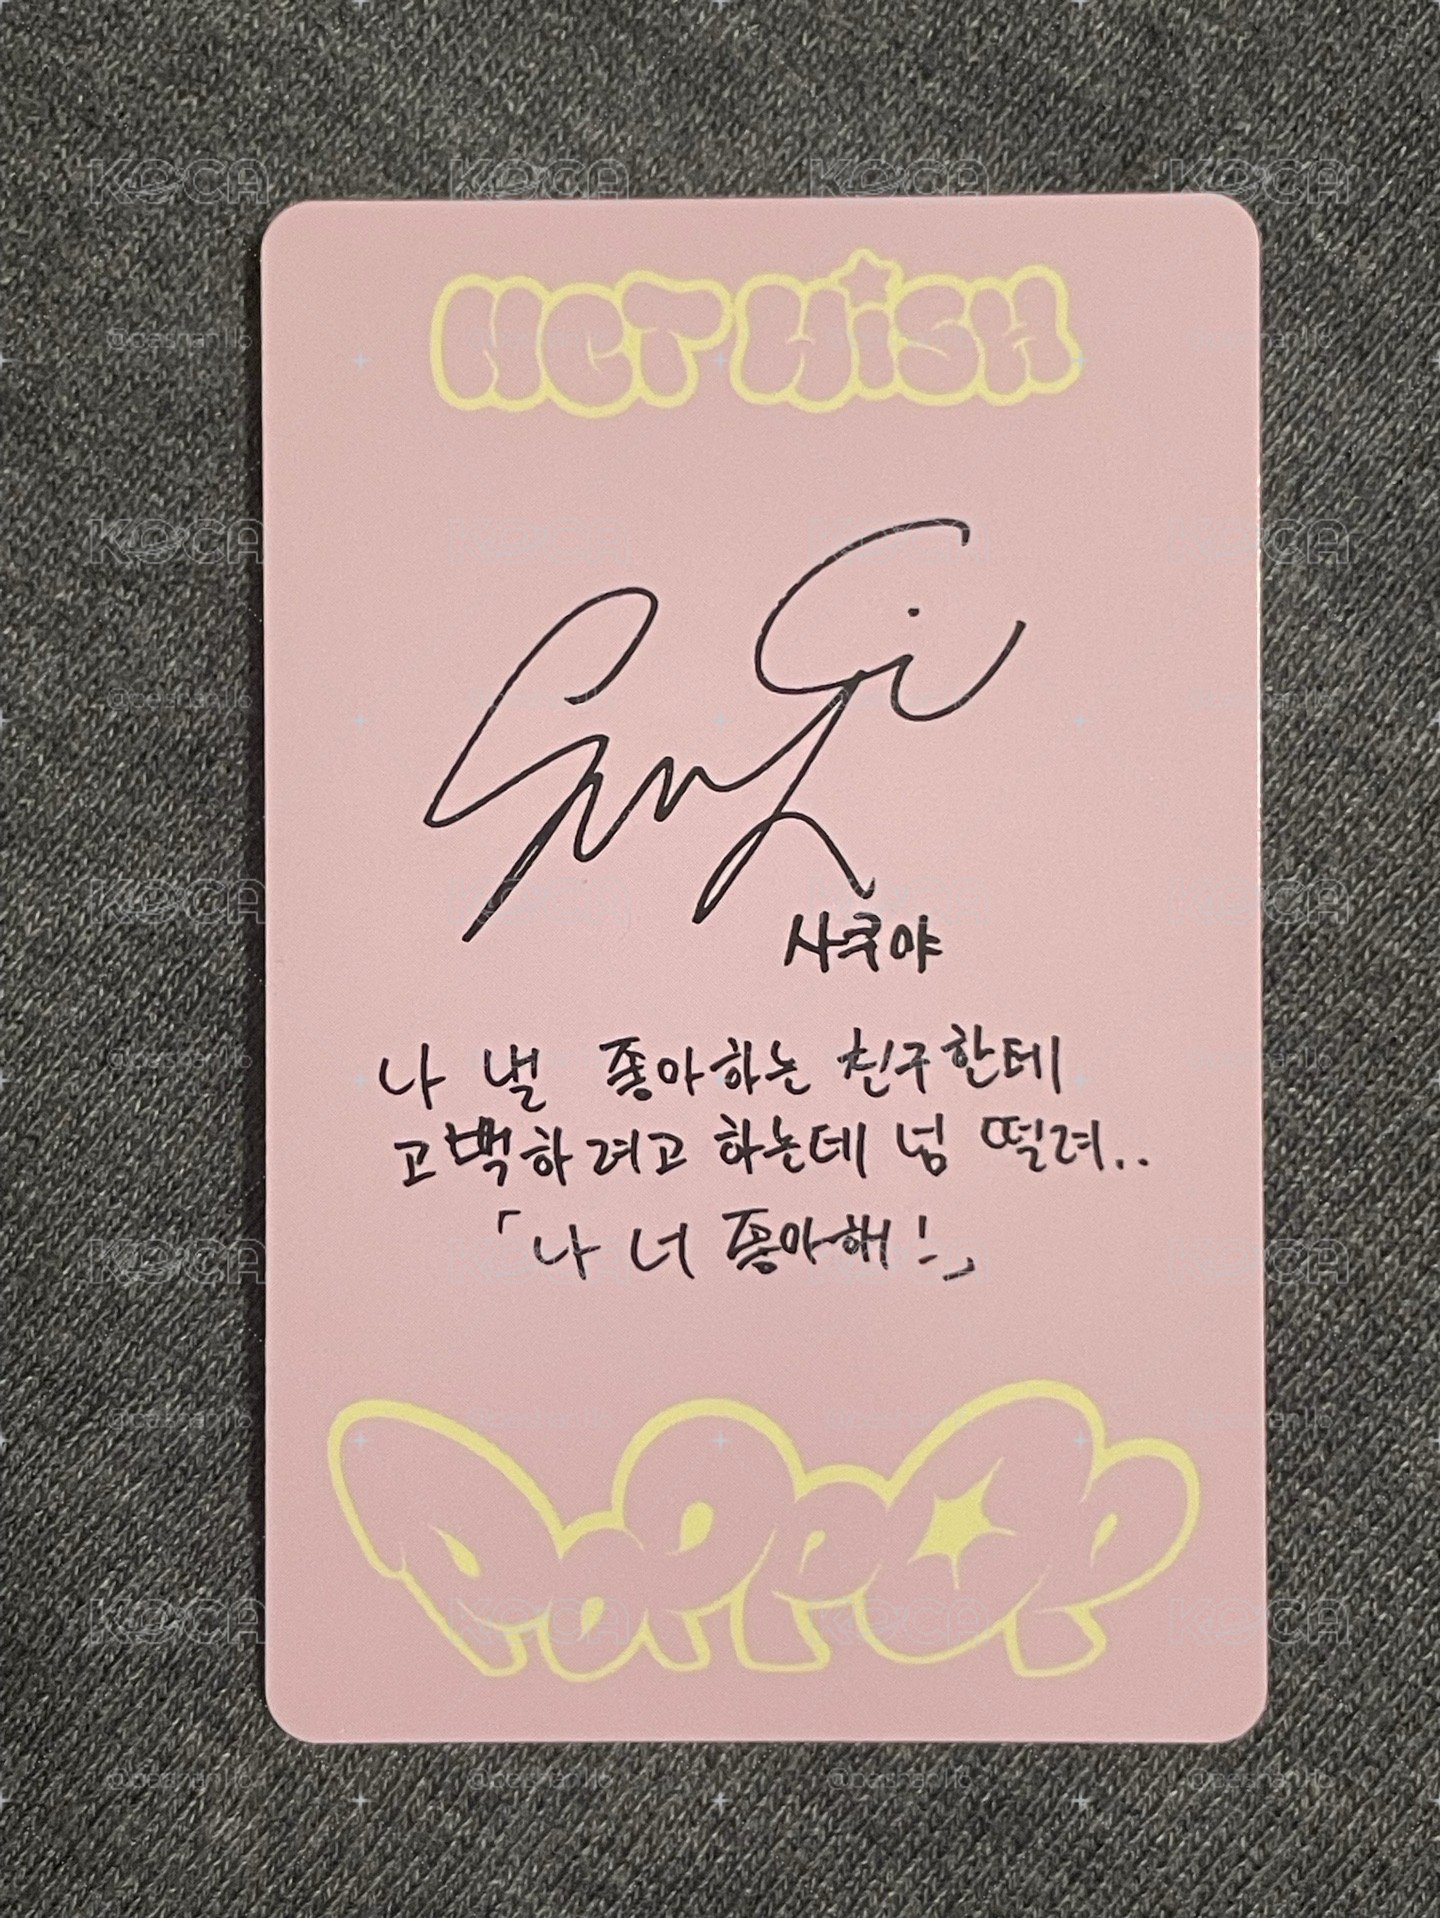 NCT WiSH
사쿠야
나 낼 좋아하는 친구한테
고백하려고 하는데 넘 떨려..
「나 너 좋아해!」
POPPOP